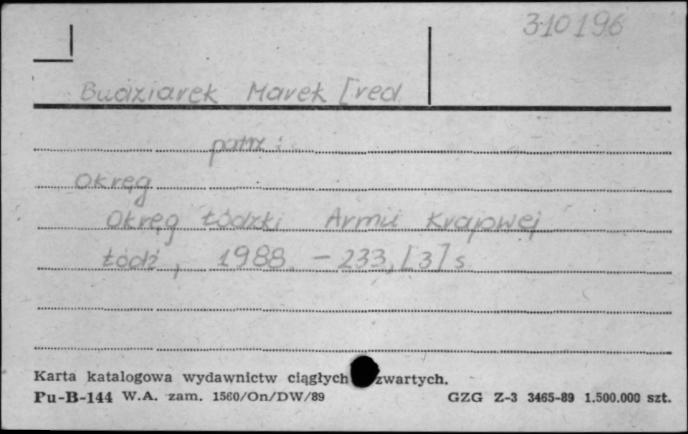 310196
Budziarek Marek [red.
patrz:
Okręg
Okręg Łódzki Armii Krajowej
Łódź, 1988. - 233, [3] s.
Karta katalogowa wydawnictw ciągłych zwartych.
Pu-B-144 W.A. zam. 1560/On/DW/89 GZG Z-3 3465-89 1.500.000 szt.